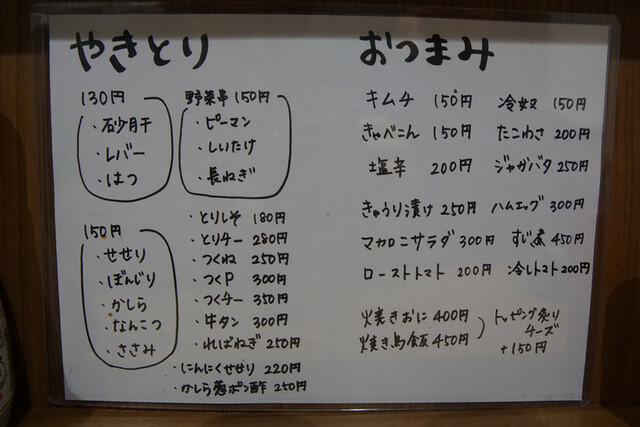 やきとり
130円
・砂肝
・レバー
・はつ
野菜串 150円
・ピーマン
・しいたけ
・長ねぎ
150円
・せせり
・ぼんじり
・かしら
・なんこつ
・ささみ
・とりしそ 180円
・とりチー 280円
・つくね 250円
・つくP 300円
・つくチー 350円
・牛タン 300円
・ればねぎ 250円
・にんにくせせり 220円
・かしら葱ポン酢 250円
おつまみ
キムチ 150円 冷奴 150円
きゃべこん 150円 たこわさ 200円
塩辛 200円 ジャガバタ 250円
きゅうり漬け 250円 ハムエッグ 300円
マカロニサラダ 300円 すじ煮 450円
ローストトマト 200円 冷しトマト 200円
焼きおに 400円
焼き鳥飯 450円
トッピング炙り
チーズ
+150円